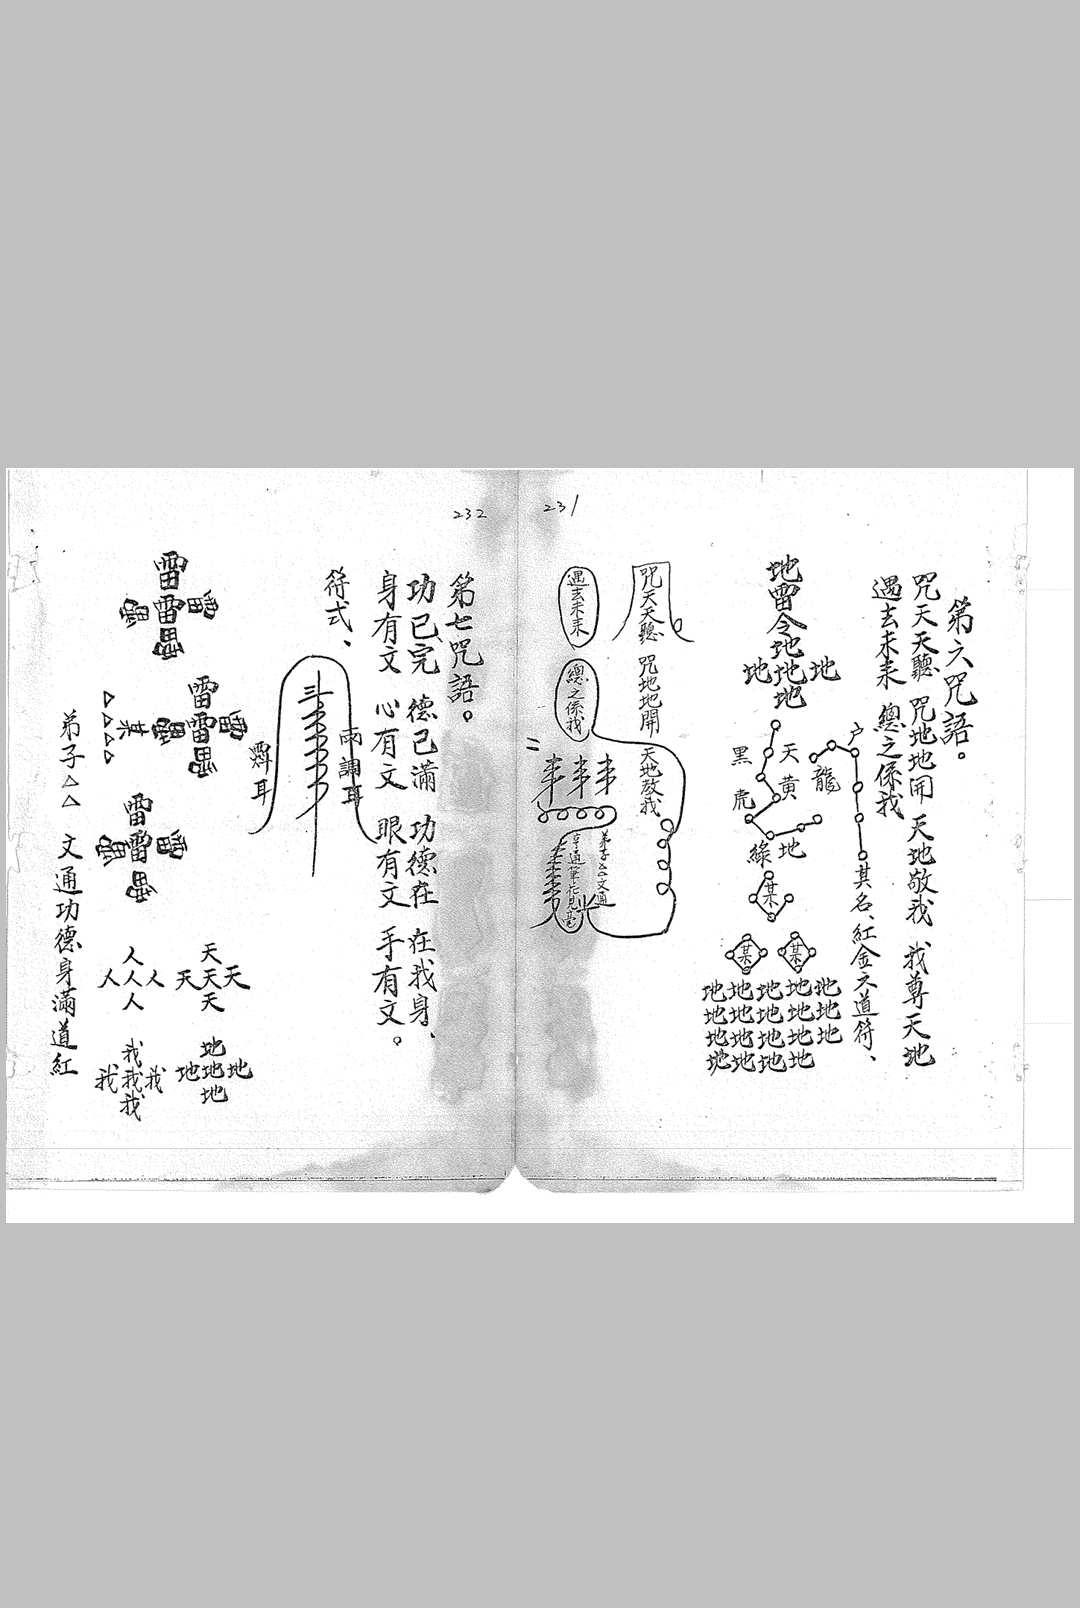 231
第六咒語。
咒天天聽 咒地地開 天地敬我 我尊天地
過去未来 總之係我
其名、紅金之道符、
户
龍
天黄
地
黑虎
綠
某
某
某
地雷令地
地地地
地
地地地地地
地地地地地
地地地地地
地地地地
咒天天聽 咒地地開 天地敬我
過去未来
總之係我
弟子△△文通
232
第七咒語。
功已完 德已滿 功德在 在我身、
身有文 心有文 眼有文 手有文。
符式、
耳
耳
雷
雷
雷
雷
某
△△△△
雷
天
天天天
天
人
人人人
人
地
地地地
地
我
我我我
我
弟子△△ 文通功德身滿道紅